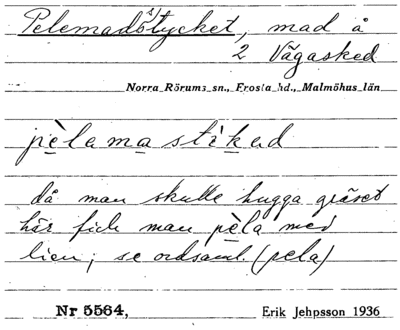 Pelemadstycket, mad å
2 Vägasked
Norra Rörums sn., Frosta hd., Malmöhus län
pèlama stìkad
då man skulle hugga gräset
här fick man pèla med
lien; se ordsaml. (pela)
Nr 5564, Erik Jehpsson 1936